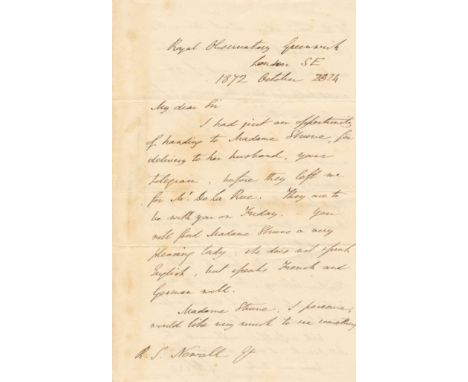 Royal Observatory Greenwich
London SE
1872 October 24
My dear Sir
I had just an opportunity
of handing to Madame Struve, for
delivery to her husband, your
telegram, before they left me
for Mr De La Rue. They are to
be with you on Friday. You
will find Madame Struve a very
pleasing lady; she does not speak
English, but speaks French and
German well.
Madame Struve, I presume,
would like very much to see something
R. S. Newall